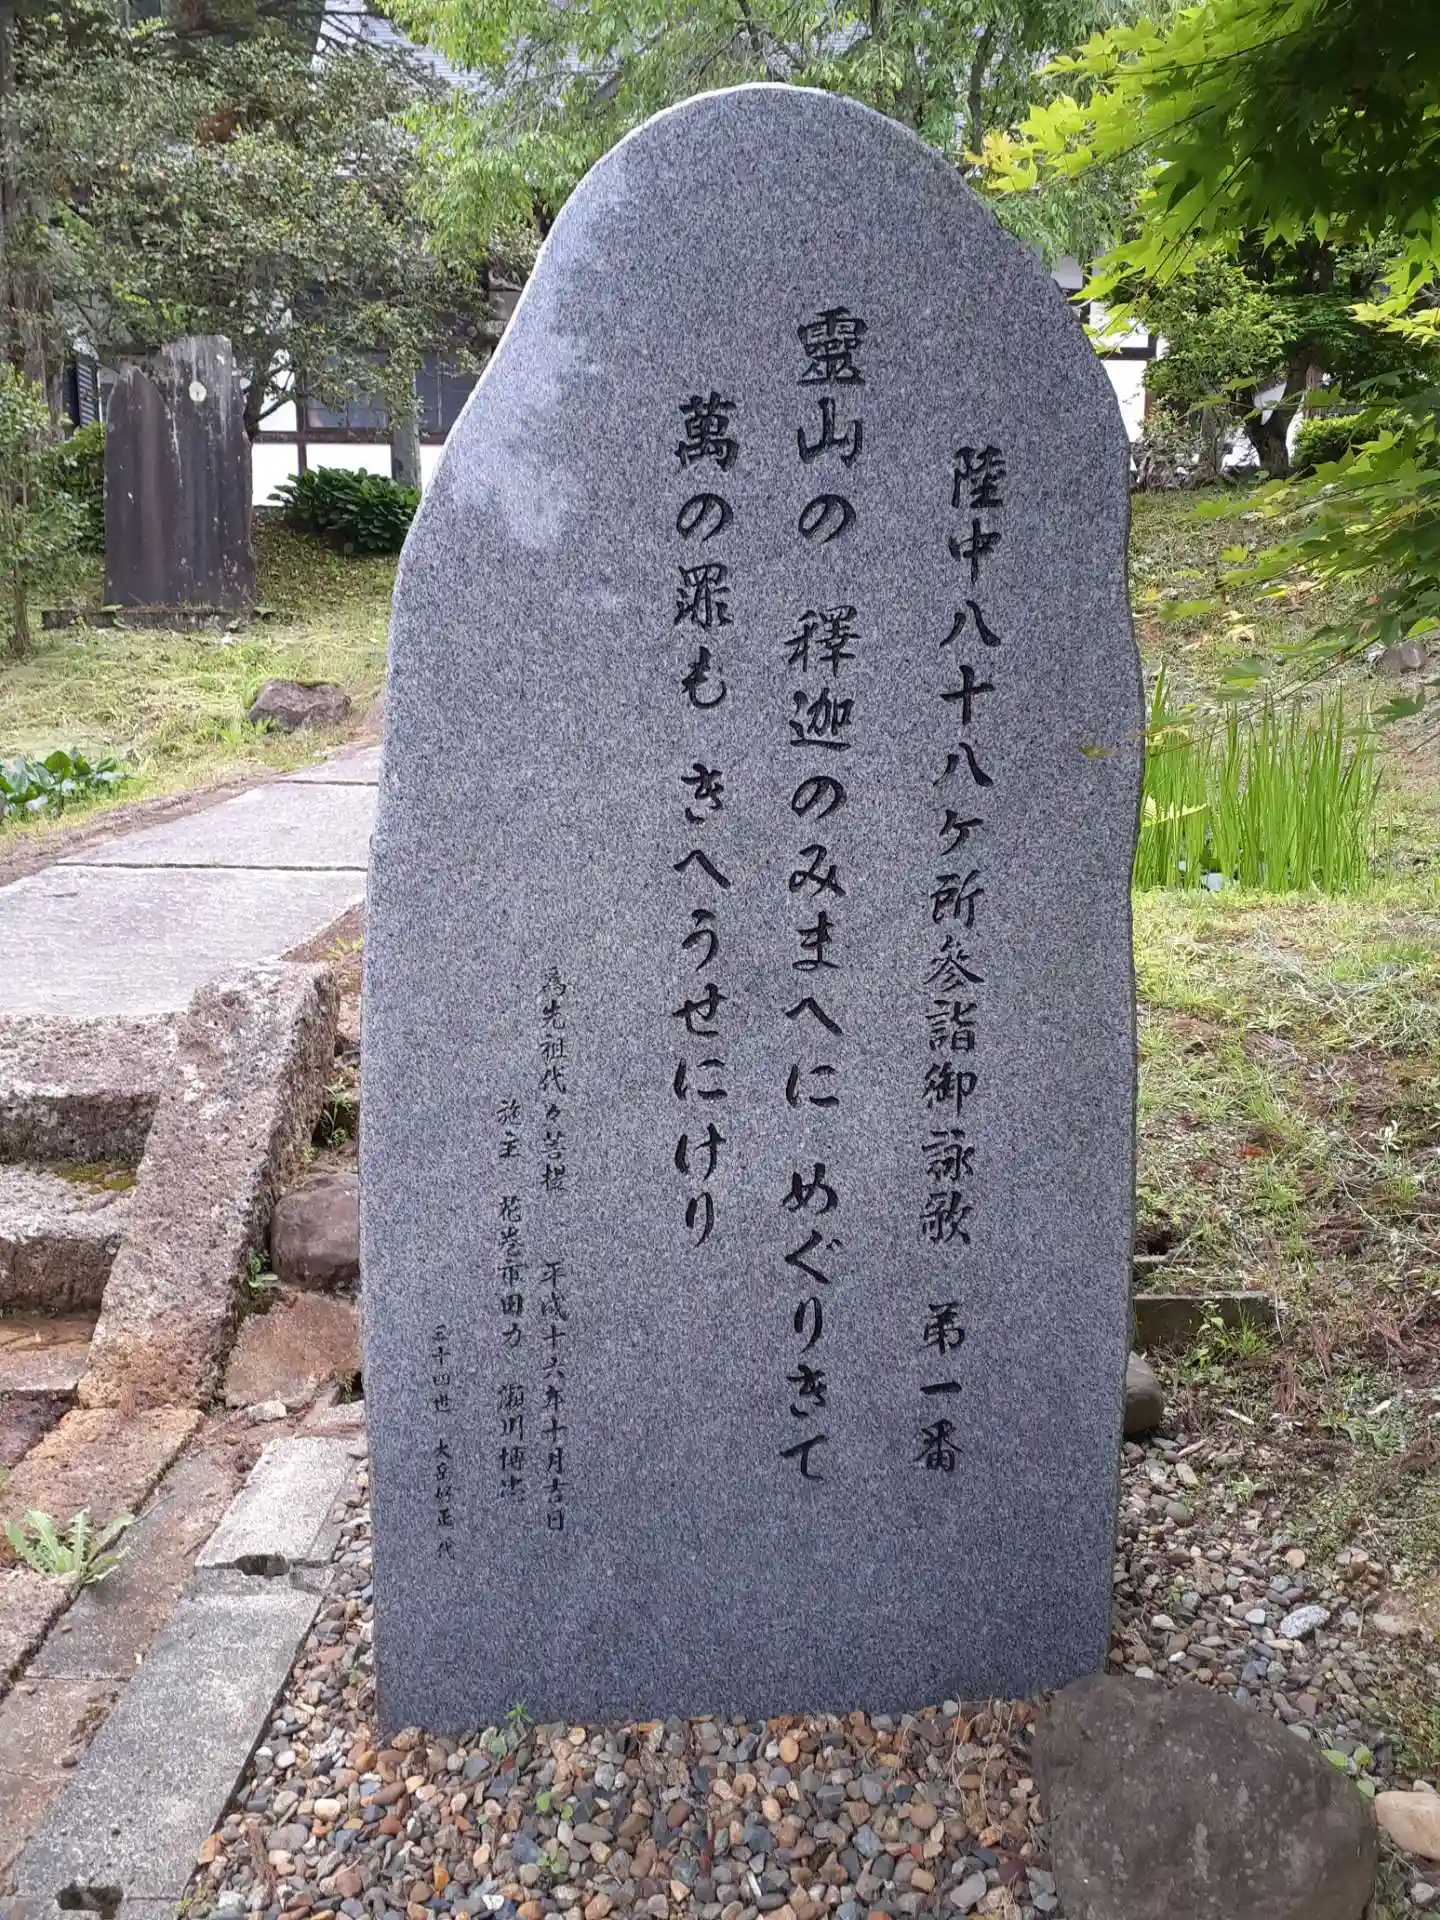 陸中八十八ケ所参詣御詠歌 第一番
靈山の 釋迦のみまへに めぐりきて
萬の罪も きへうせにけり
為先祖代々菩提 平成十六年十月吉日
施主 花巻市田力 瀬川博忠
三十四世 大岳好正代